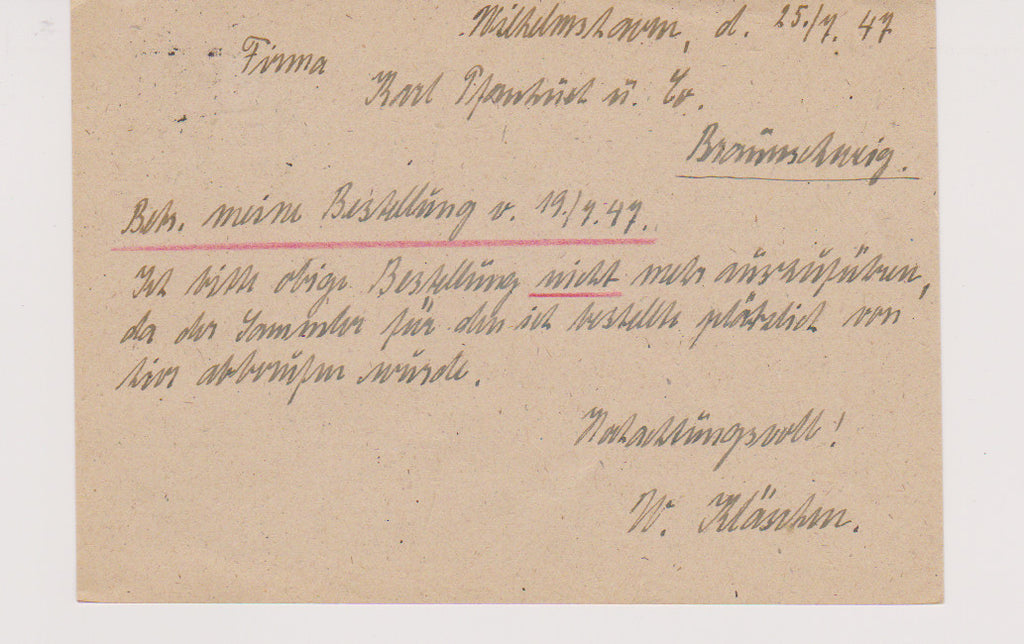 Wilhelmshaven, d. 25./7. 47
Firma
Karl Pfankuch u. Co.
Braunschweig.
Betr. meine Bestellung v. 19./7.47.
Ich bitte obige Bestellung nicht mehr auszuführen,
da der Sammler für den ich bestellte plötzlich von
hier abberufen wurde.
Hochachtungsvoll!
W. Kläschen.